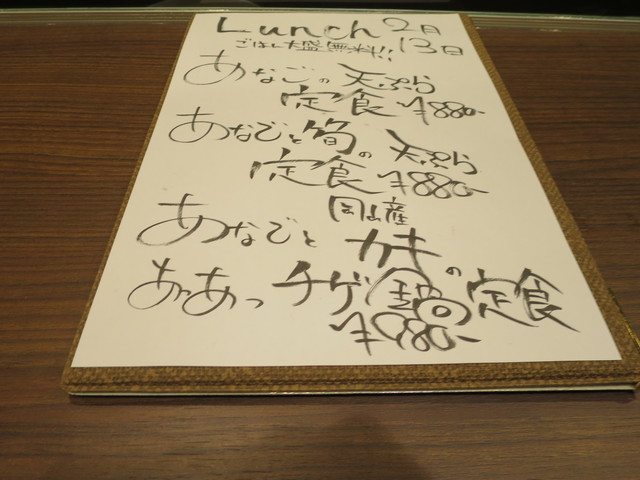 Lunch 2月
ごはん大盛無料!! 13日
あなごの天ぷら
定食 ¥880-
あなごと筍の天ぷら
定食 ¥880-
岡山産
あなごとカキの
あつあつチゲ鍋定食
¥980-